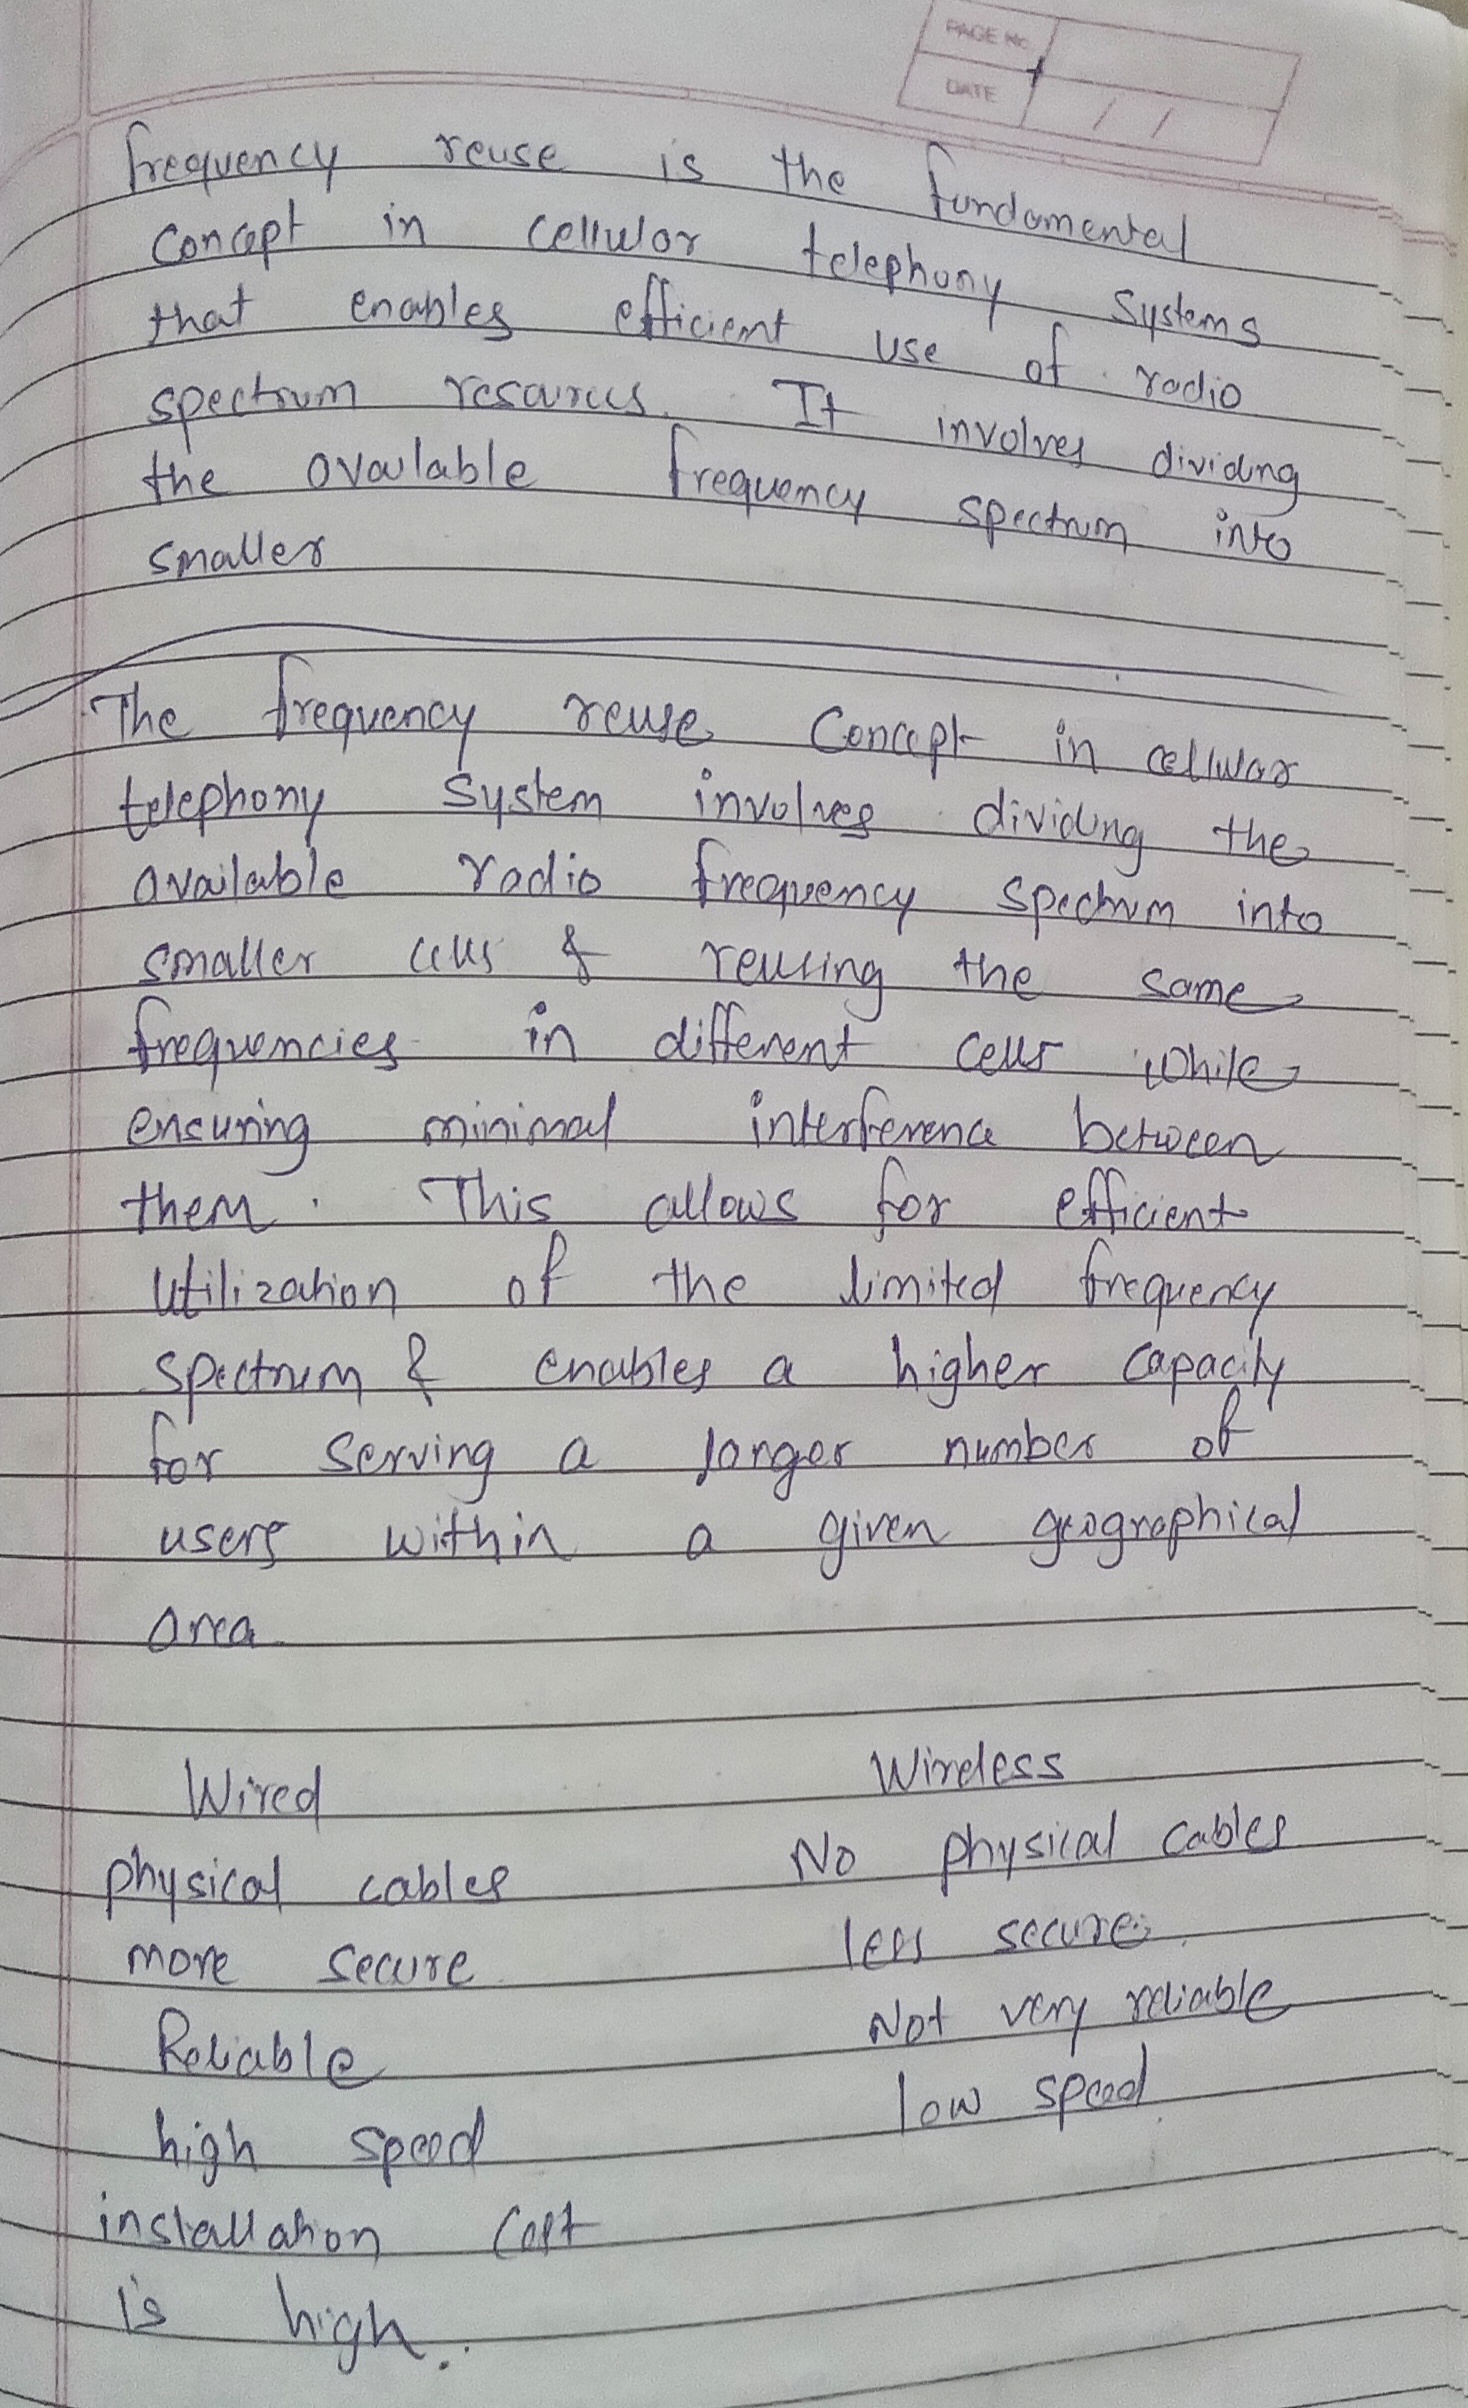 PAGE No.
DATE / /
frequency reuse is the fundamental
concept in cellular telephony systems
that enables efficient use of radio
spectrum resources. It involves dividing
the available frequency spectrum into
smaller
The frequency reuse concept in cellular
telephony system involves dividing the
available radio frequency spectrum into
smaller cells & reusing the same
frequencies in different cells while
ensuring minimal interference between
them. This allows for efficient
utilization of the limited frequency
spectrum & enables a higher capacity
for serving a larger number of
users within a given geographical
area
Wired Wireless
physical cables No physical cables
more secure less secure.
Reliable Not very reliable
high speed low speed
installation cost
is high.